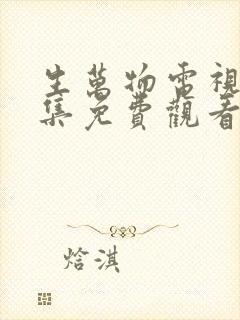 生萬物電視
集免費觀看
焓淇